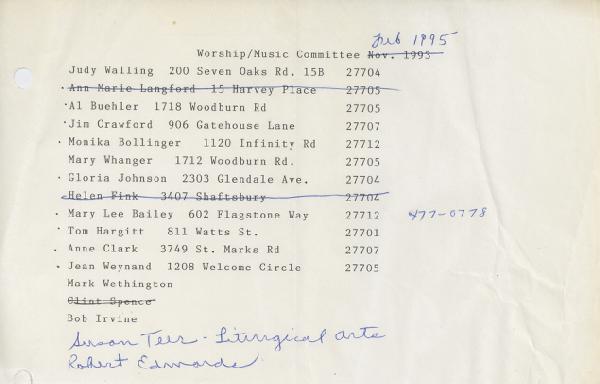 Feb 1995
Worship/Music Committee Nov. 1993
Judy Walling 200 Seven Oaks Rd. 15B 27704
· Ann Marie Langford 15 Harvey Place 27705
· Al Buehler 1718 Woodburn Rd 27705
· Jim Crawford 906 Gatehouse Lane 27707
· Monika Bollinger 1120 Infinity Rd 27712
Mary Whanger 1712 Woodburn Rd. 27705
· Gloria Johnson 2303 Glendale Ave. 27704
Helen Fink 3407 Shaftsbury 27704
· Mary Lee Bailey 602 Flagstone Way 27712 477-0778
· Tom Hargitt 811 Watts St. 27701
· Anne Clark 3749 St. Marks Rd 27707
· Jean Weynand 1208 Welcome Circle 27705
Mark Wethington
Clint Spence
Bob Irvine
Susan Teer - Liturgical Arts
Robert Edwards